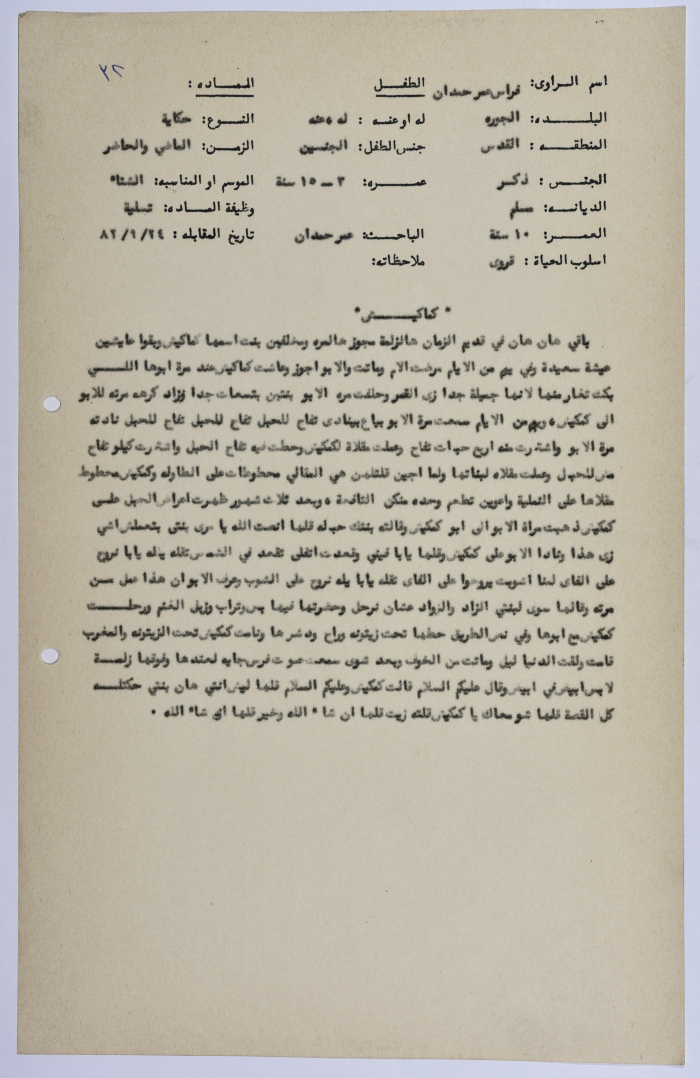 ٣٢
اسم الراوى: فراس عمر حمدان الطفـــل المــــاده:
البلـــــده: الجوره له او عنـــه : له وعنه النـــوع: حكاية
المنطقـــه : القدس جنس الطفل: الجنسين الزمـــن: الماضي والحاضر
الجنـــس : ذكـــر عمـــــره: ٣ — ١٥ سنة الموسم او المناسبه: الشتاء
الديانـــه: مسلم وظيفة المـــاده: تسلية
العمـــر: ١٠ سنة الباحـــث: عمر حمدان تاريخ المقابله : ٨٢/١/٢٤
اسلوب الحياة : قروى ملاحظاته:
" كماكيـــــش"
ياقي هان هان في قديم الزمان هالزلمة مجوز هالمره ومخلفين بنت اسمها كماكيش وبقوا عايشين
عيشة سعيدة وفي يوم من الايام مرضت الام وماتت والابو اجوز وعاشت كماكيش عند مرة ابوها اللـــي
بكت تغار منها لانها جميلة جدا زى القمر وخلفت مره الابو بنتين بشعات جدا وزاد كرهه مرته للابو
الى كمكيش ويوم من الايام سمعت مرة الابو بياع بينادى تفاح للحبل تفاح للحبل تفاح للحبل نادته
مرة الابو واشترت منه اربع حبات تفاح وعملت مقلاة لكمكيش وحطت فيه تفاح الحبل واشترت كيلو تفاح
مش للحبل وعملت مقلاه لبناتها ولما اجين قلتلهن هي المقالي محطوطات على الطاوله وكمكيش محطوط
مقلاها على النملية واعوين تطعم وحده منكن الثانية ، وبعد ثلاث شهور ظهرت اعراض الحبل على
كمكيش ذهبت مراة الابو الى ابو كمكيش وقالته بنتك حبله قلها اتصت الله يا مرى بنتي بتعملش اشي
زى هذا ونادا الابو على كمكيش وقلها يابا فيني وقعدت اتفلى تقعد في الشمس تقله يله يابا نروح
على الفاى لمنا اشوبت يروحوا على الفاى تقله يابا يله نروح على الشوب وعرف الابو ان هذا عمل مـــن
مرته وقالها سوى لبنتي الزاد والزواد عشان نرحل وحضرتها فيها بس وتراب وزبل الغنم ورحلـــت
كمكيش مع ابوها وفي نص الطريق حطها تحت زيتونه وراح ودشرها ونامت كمكيش تحت الزيتونه والمغرب
قامت ولقت الدنيا ليل وماتت من الخوف وبعد شوى سمعت صوت فرس جايه لعندها وفوقها زلمـــة
لابس ابيض في ابيض وقال عليكم السلام قالت كمكيش وعليكم السلام قلها ليش انتي هان بنتي حكتلـــه
كل القصة قلها شو معاك يا كمكيش قلته زيت قلها ان شاء الله وخير قلها اى شاء الله .